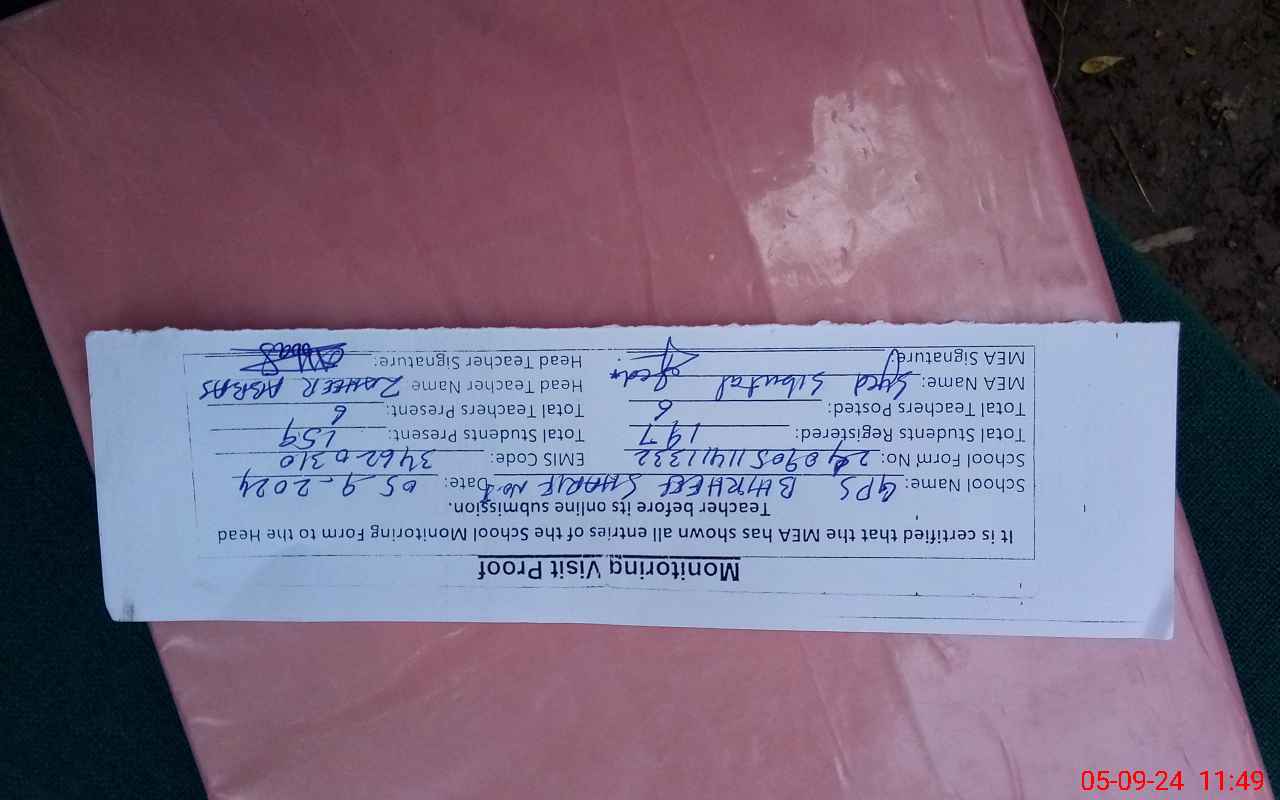 Monitoring Visit Proof
It is certified that the MEA has shown all entries of the School Monitoring Form to the Head
Teacher before its online submission.
School Name: GPS BHIRKHEE SHARIF No-1 Date: 05-9-2024
School Form No: 24090511411332 EMIS Code: 34620310
Total Students Registered: 197 Total Students Present: 159
Total Teachers Posted: 6 Total Teachers Present: 6
MEA Name: Syed Sibutal Head Teacher Name ZAHEER ABBAS
MEA Signature: Head Teacher Signature: Abbas
05-09-24 11:49